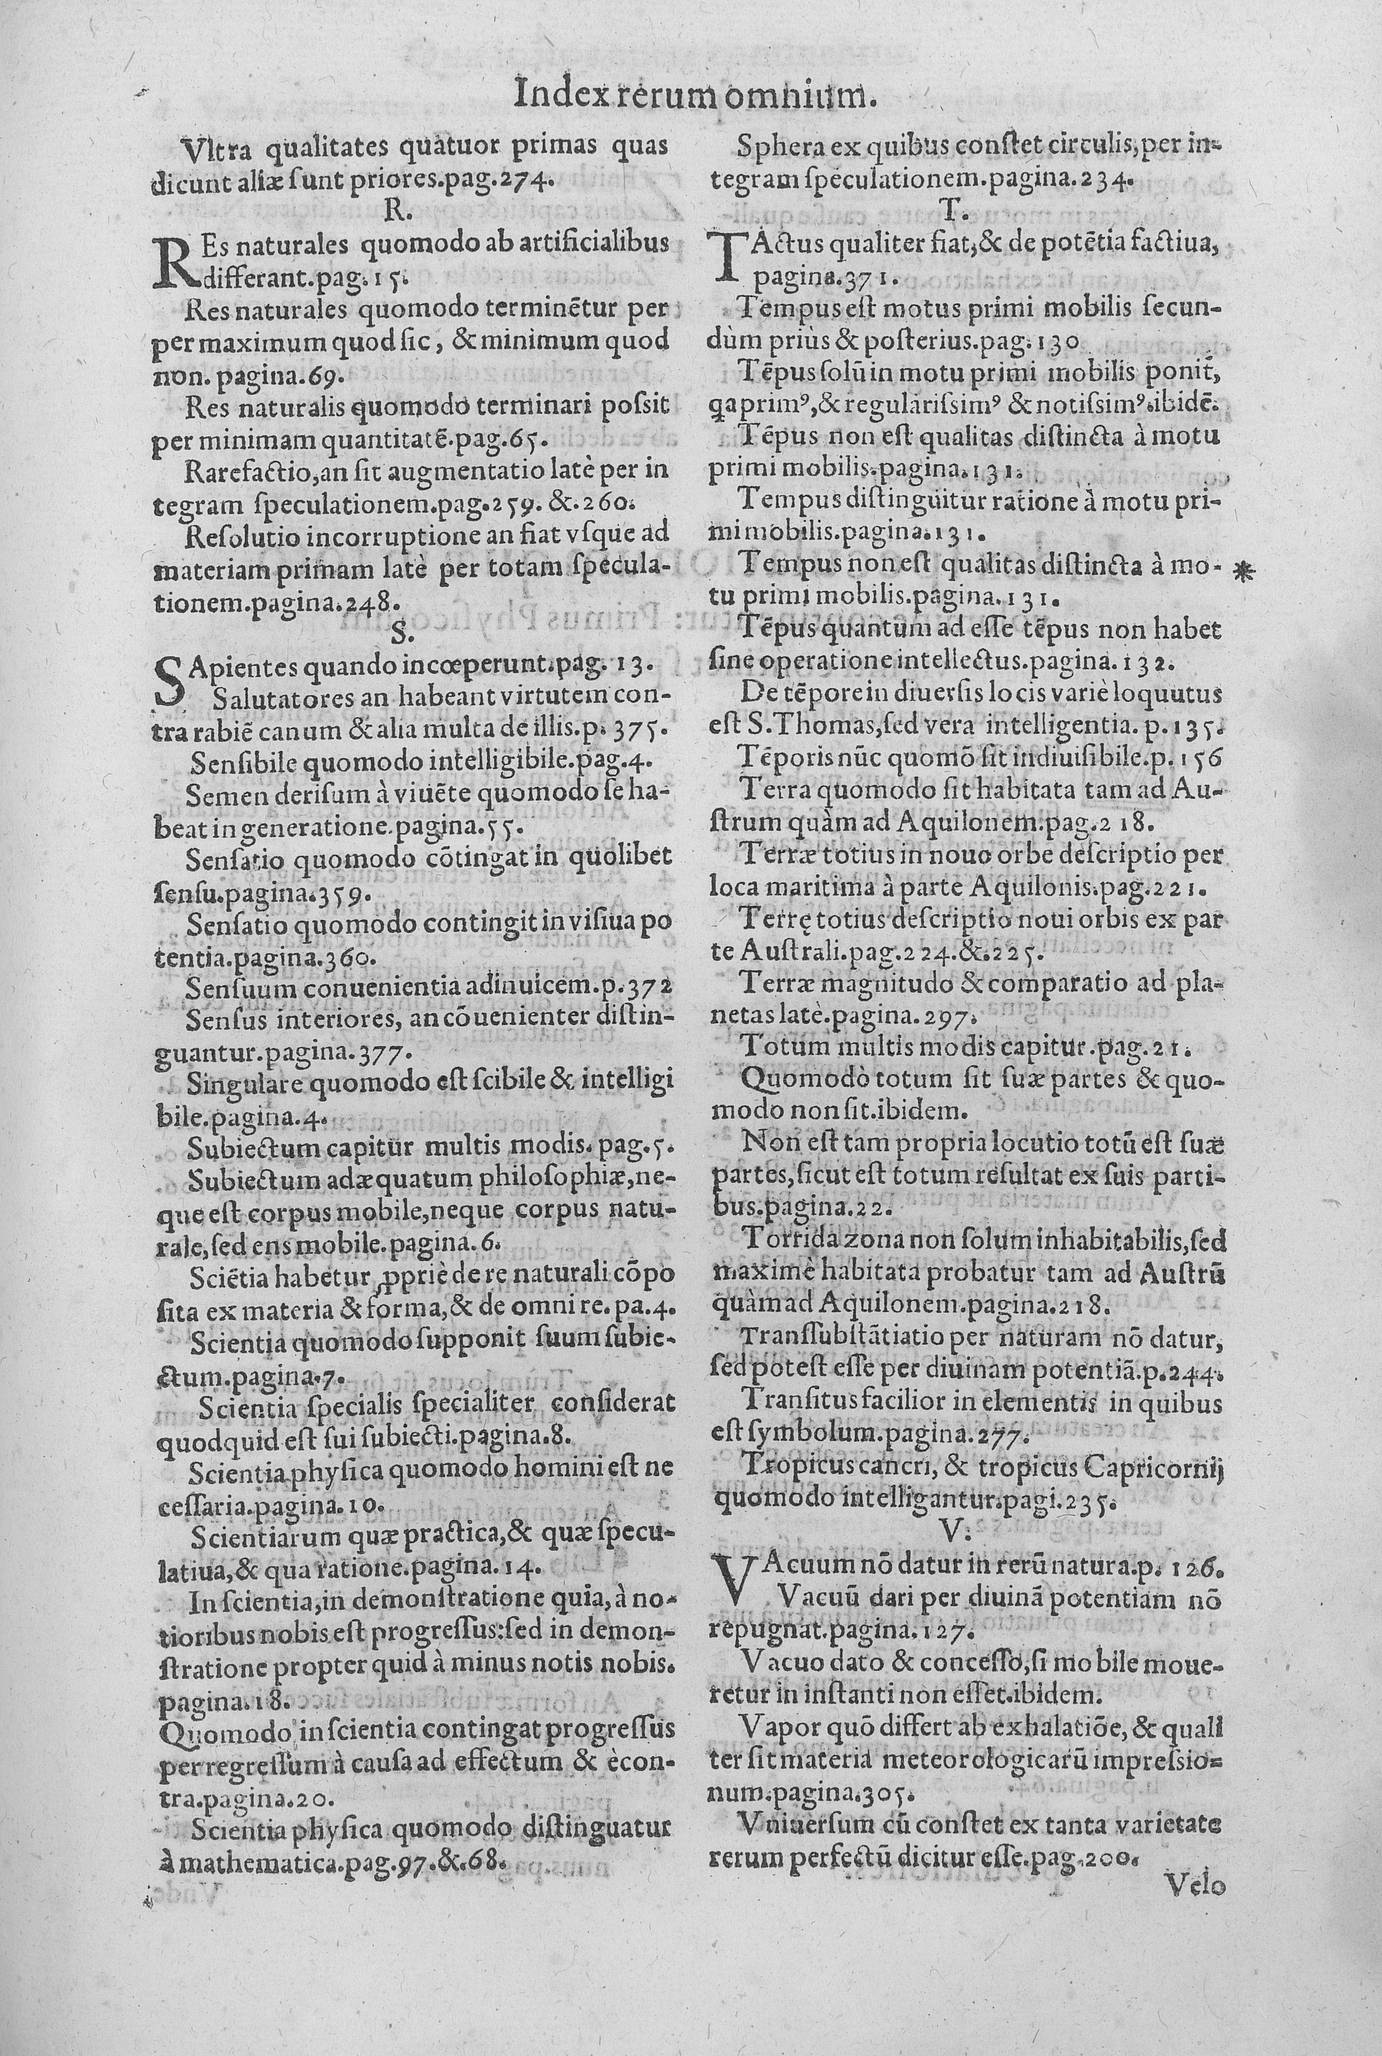 Index rerum omnium.
Vltra qualitates quatuor primas quas
dicunt aliæ sunt priores.pag.274.
R.
REs naturales quomodo ab artificialibus
differant.pag.15.
Res naturales quomodo terminētur per
per maximum quod sic, & minimum quod
non. pagina.69.
Res naturalis quomodo terminari possit
per minimam quantitatē.pag.65.
Rarefactio,an sit augmentatio latè per in
tegram speculationem.pag.259. &.260.
Resolutio incorruptione an fiat vsque ad
materiam primam latè per totam specula-
tionem.pagina.248.
S.
SApientes quando incœperunt.pag.13.
Salutatores an habeant virtutem con-
tra rabiē canum & alia multa de illis.p.375.
Sensibile quomodo intelligibile.pag.4.
Semen derisum à viuēte quomodo se ha-
beat in generatione.pagina.55.
Sensatio quomodo cōtingat in quolibet
sensu.pagina.359.
Sensatio quomodo contingit in visiua po
tentia.pagina.360.
Sensuum conuenientia adinuicem.p.372
Sensus interiores, an cōuenienter distin-
guantur.pagina.377.
Singulare quomodo est scibile & intelligi
bile.pagina.4.
Subiectum capitur multis modis.pag.5.
Subiectum adæquatum philosophiæ,ne-
que est corpus mobile,neque corpus natu-
rale,sed ens mobile.pagina.6.
Sciētia habetur ꝓpriè de re naturali cōpo
sita ex materia & forma,& de omni re.pa.4.
Scientia quomodo supponit suum subie-
ctum.pagina.7.
Scientia specialis specialiter considerat
quodquid est sui subiecti.pagina.8.
Scientia physica quomodo homini est ne
cessaria.pagina.10.
Scientiarum quæ practica,& quæ specu-
latiua,& qua ratione.pagina.14.
In scientia,in demonstratione quia, à no-
tioribus nobis est progressus:sed in demon-
stratione propter quid à minus notis nobis.
pagina.18.
Quomodo in scientia contingat progressus
per regressum à causa ad effectum & ècon-
tra.pagina.20.
Scientia physica quomodo distinguatur
à mathematica.pag.97.&.68.
Sphera ex quibus constet circulis,per in-
tegram speculationem.pagina.234.
T.
TActus qualiter fiat,& de potētia factiua,
pagina.371.
Tempus est motus primi mobilis secun-
dùm priùs & posterius.pag.130
Tēpus solū in motu primi mobilis ponit,
qa primꝰ,& regularissimꝰ & notissimꝰ.ibidē.
Tēpus non est qualitas distincta à motu
primi mobilis.pagina.131.
Tempus distinguitur ratione à motu pri-
mi mobilis.pagina.131.
Tempus non est qualitas distincta à mo- *
tu primi mobilis.pagina.131.
Tēpus quantum ad esse tēpus non habet
sine operatione intellectus.pagina.132.
De tēpore in diuersis locis variè loquutus
est S.Thomas,sed vera intelligentia. p.135.
Tēporis nūc quomō sit indiuisibile.p.156
Terra quomodo sit habitata tam ad Au-
strum quàm ad Aquilonem.pag.218.
Terræ totius in nouo orbe descriptio per
loca maritima à parte Aquilonis.pag.221.
Terrę totius descriptio noui orbis ex par
te Australi.pag.224.&.225.
Terræ magnitudo & comparatio ad pla-
netas latè.pagina.297.
Totum multis modis capitur.pag.21.
Quomodò totum sit suæ partes & quo-
modo non sit.ibidem.
Non est tam propria locutio totū est suæ
partes,sicut est totum resultat ex suis parti-
bus.pagina.22.
Torrida zona non solum inhabitabilis,sed
maximè habitata probatur tam ad Austrū
quàm ad Aquilonem.pagina.218.
Transsubstātiatio per naturam nō datur,
sed potest esse per diuinam potentiā.p.244.
Transitus facilior in elementis in quibus
est symbolum.pagina.277.
Tropicus cancri, & tropicus Capricornij
quomodo intelligantur.pagi.235.
V.
VAcuum nō datur in rerū natura.p. 126.
Vacuū dari per diuinā potentiam nō
repugnat.pagina.127.
Vacuo dato & concesso,si mobile moue-
retur in instanti non esset.ibidem.
Vapor quō differt ab exhalatiōe, & quali
ter sit materia meteorologicarū impressio-
num.pagina.305.
Vniuersum cū constet ex tanta varietate
rerum perfectū dicitur esse.pag.200.
Velo